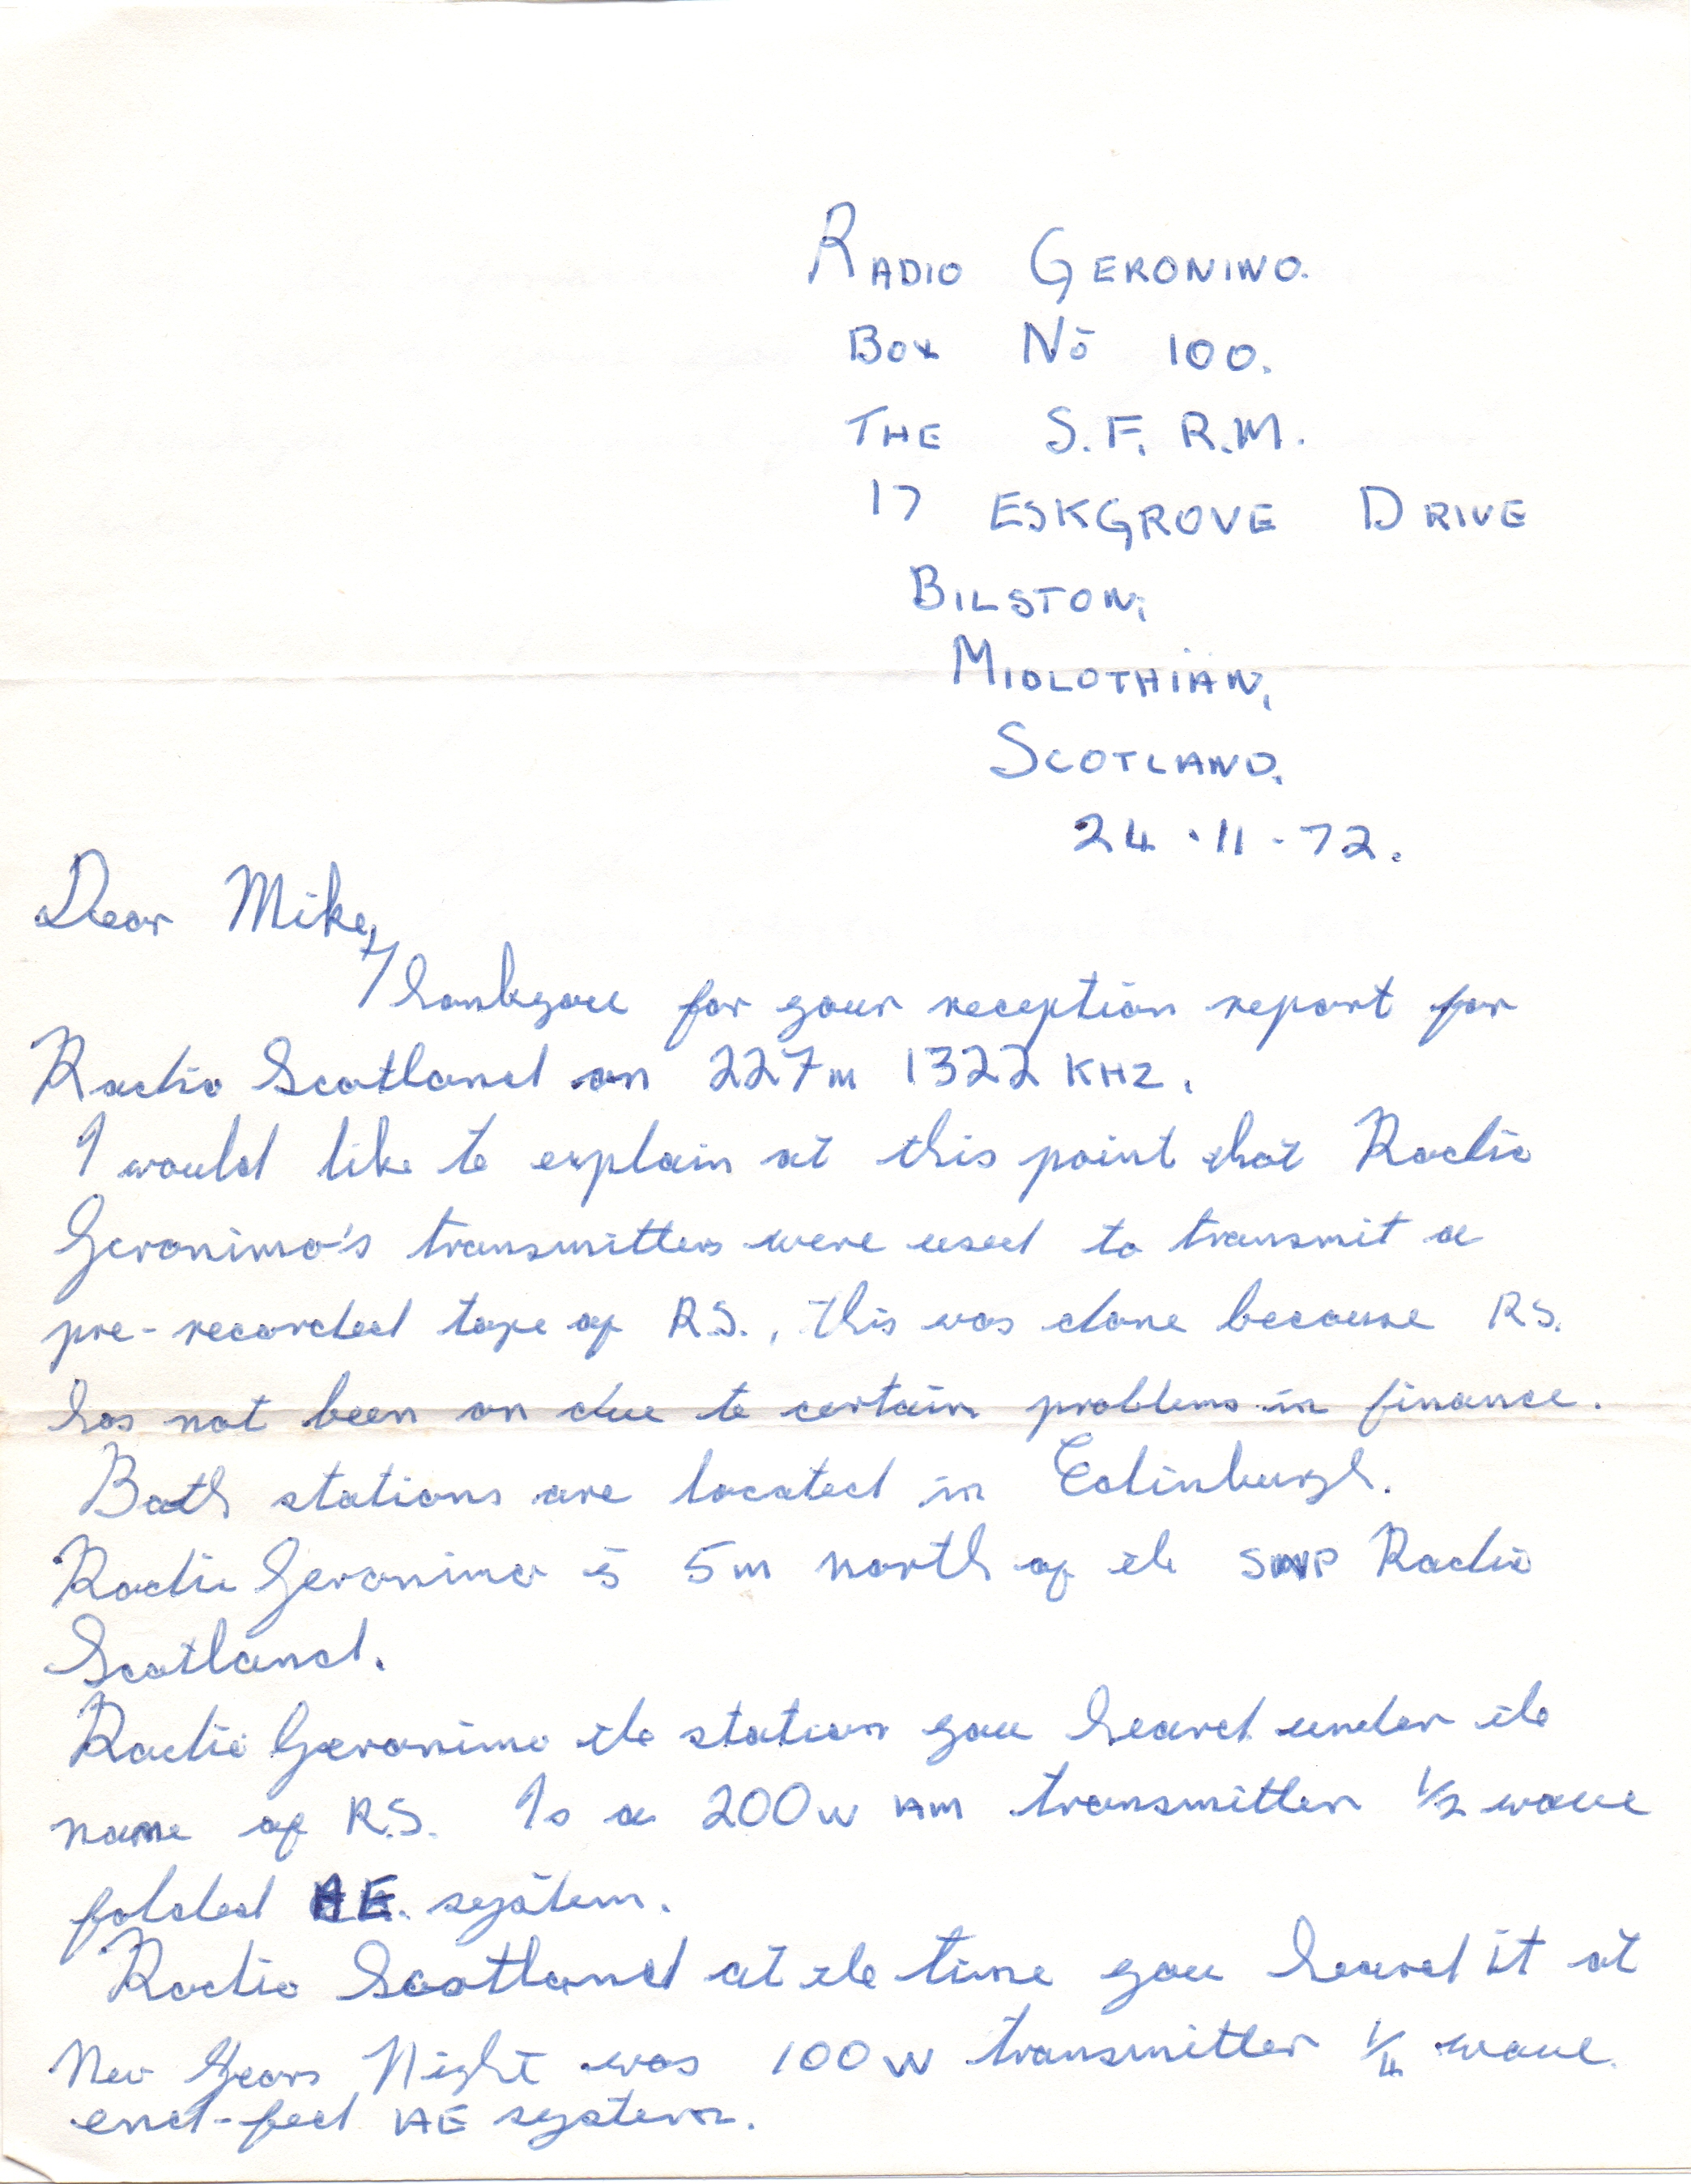 RADIO GERONIMO.
BOX No 100.
THE S.F.R.M.
17 ESKGROVE DRIVE
BILSTON,
MIDLOTHIAN,
SCOTLAND.
24.11.72.
Dear Mike,
Thankyou for your reception report for
Radio Scotland on 227m 1322 KHZ.
I would like to explain at this point that Radio
Geronimo's transmitters were used to transmit a
pre-recorded tape of R.S., this was done because RS.
has not been on due to certain problems in finance.
Both stations are located in Edinburgh.
Radio Geronimo is 5m north of the SWP Radio
Scotland.
Radio Geronimo the station you heard under the
name of R.S. Is a 200w AM transmitter 1/2 wave
folded AE. system.
Radio Scotland at the time you heard it at
New Years Night was 100w transmitter 1/4 wave
end-fed AE system.